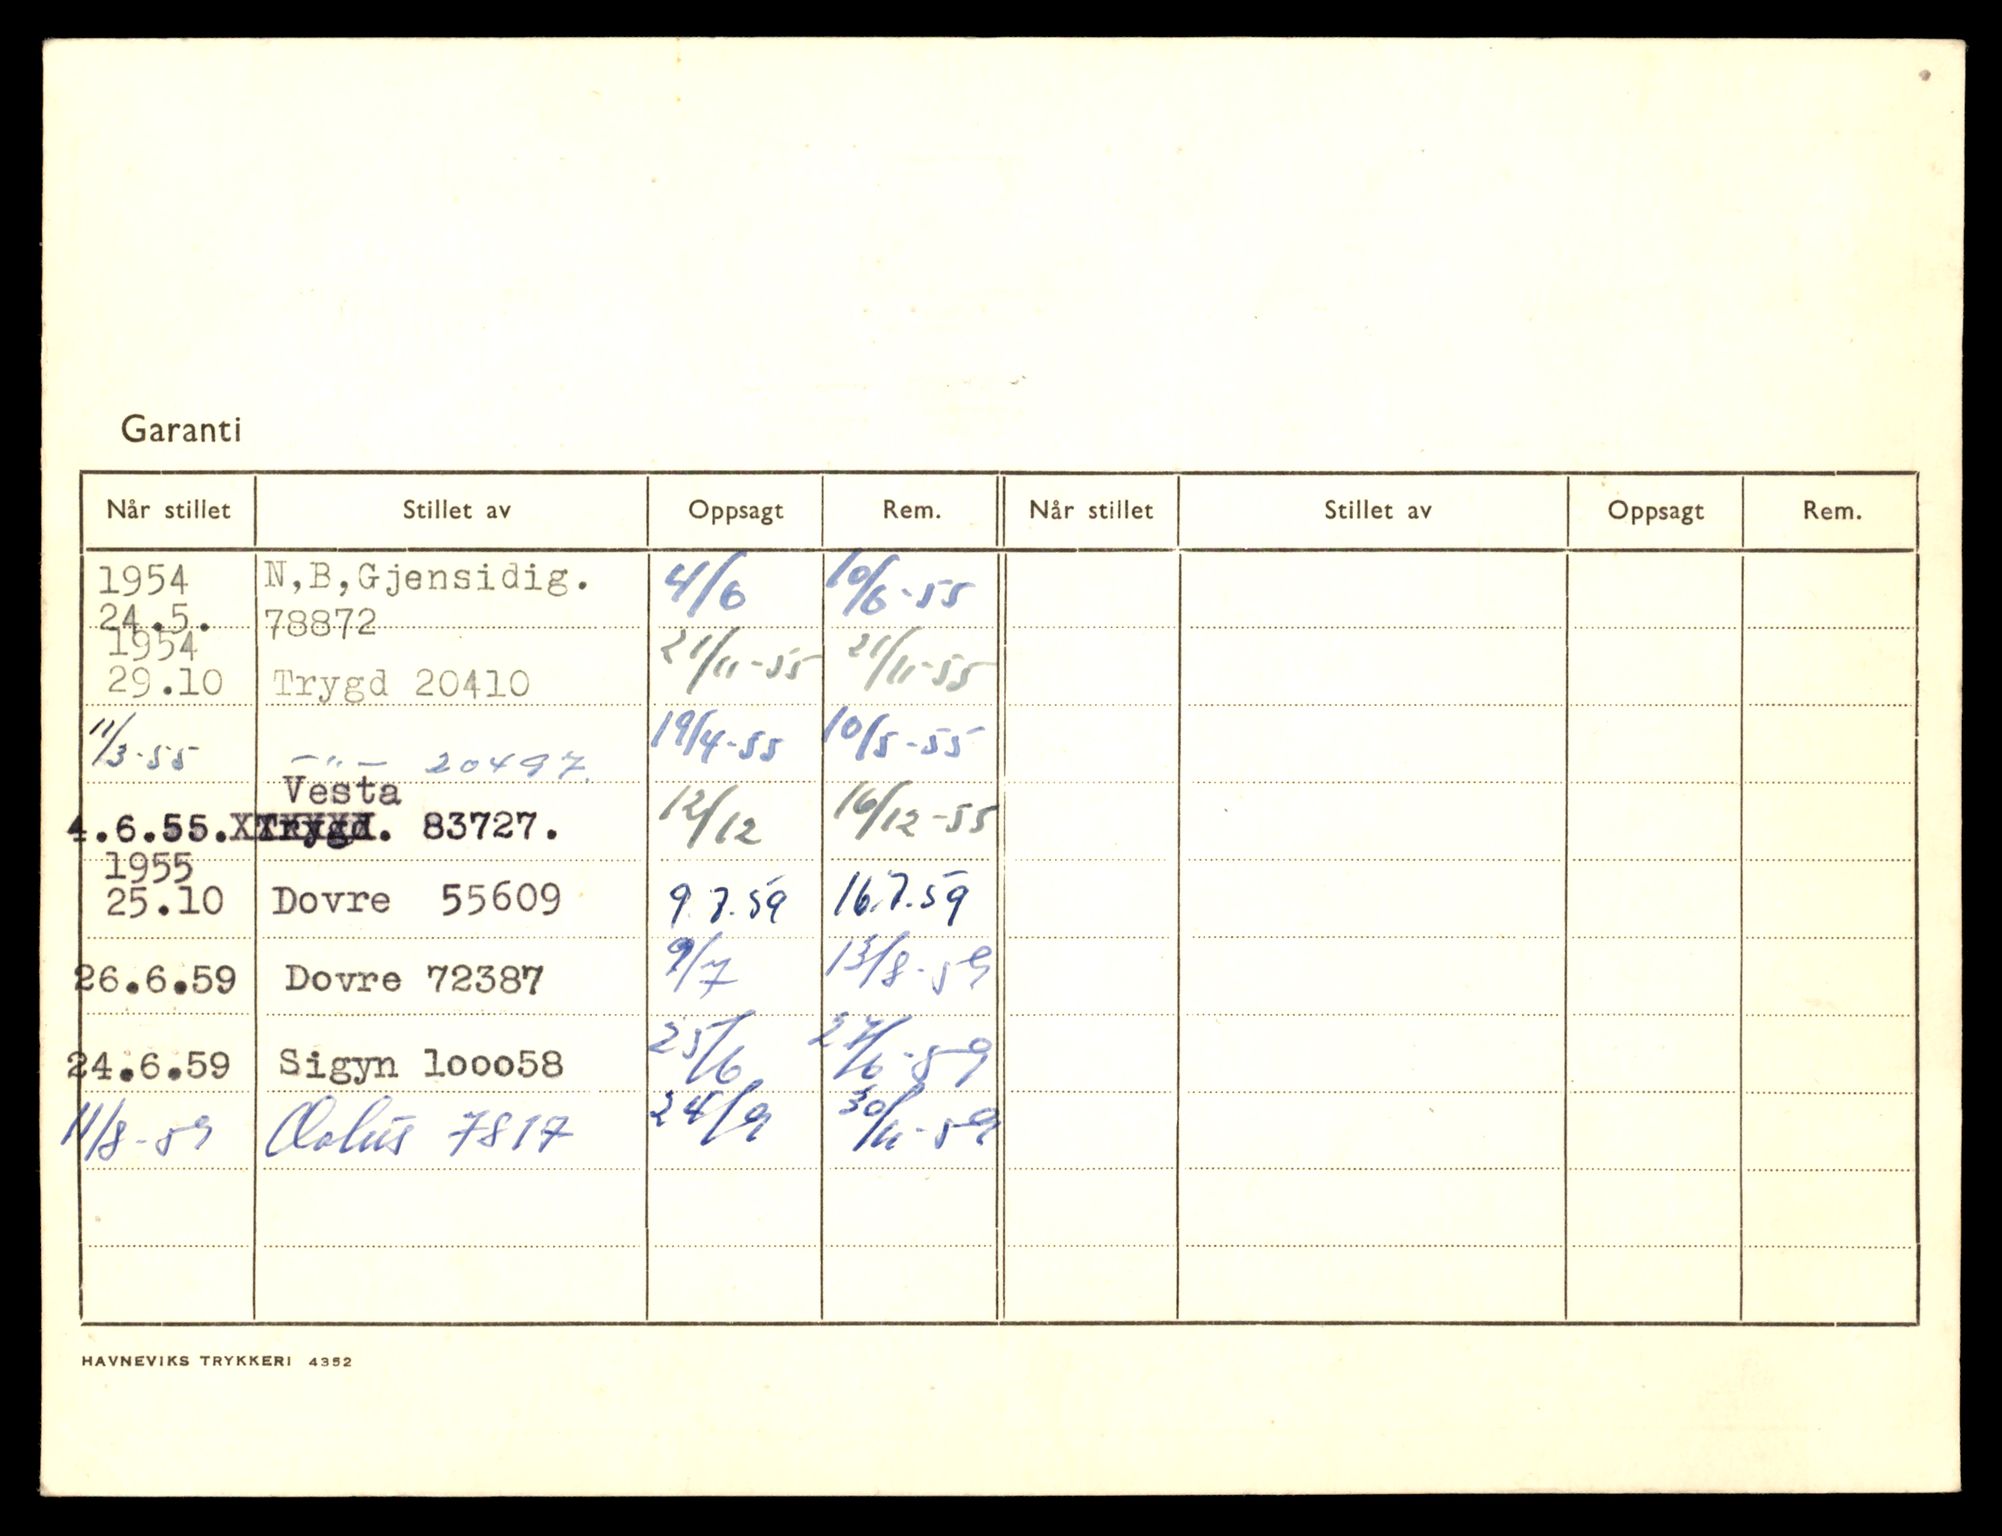 Garanti
Når stillet Stillet av Oppsagt Rem. Når stillet Stillet av Oppsagt Rem.
1954 N,B,Gjensidig. 4/6 10/6-55
24.5. 78872
1954
29.10 Trygd 20410 21/11-55 21/11-55
11/3-55 -"- 20497. 19/4-55 10/5-55
Vesta
4.6.55. Trygd. 83727. 12/12 16/12-55
1955
25.10 Dovre 55609 9.7.59 16.7.59
26.6.59 Dovre 72387 9/7 13/8-59
24.6.59 Sigyn looo58 25/6 27/6-59
11/8-59 Æolus 7817 24/9 30/11-59
HAVNEVIKS TRYKKERI 4352